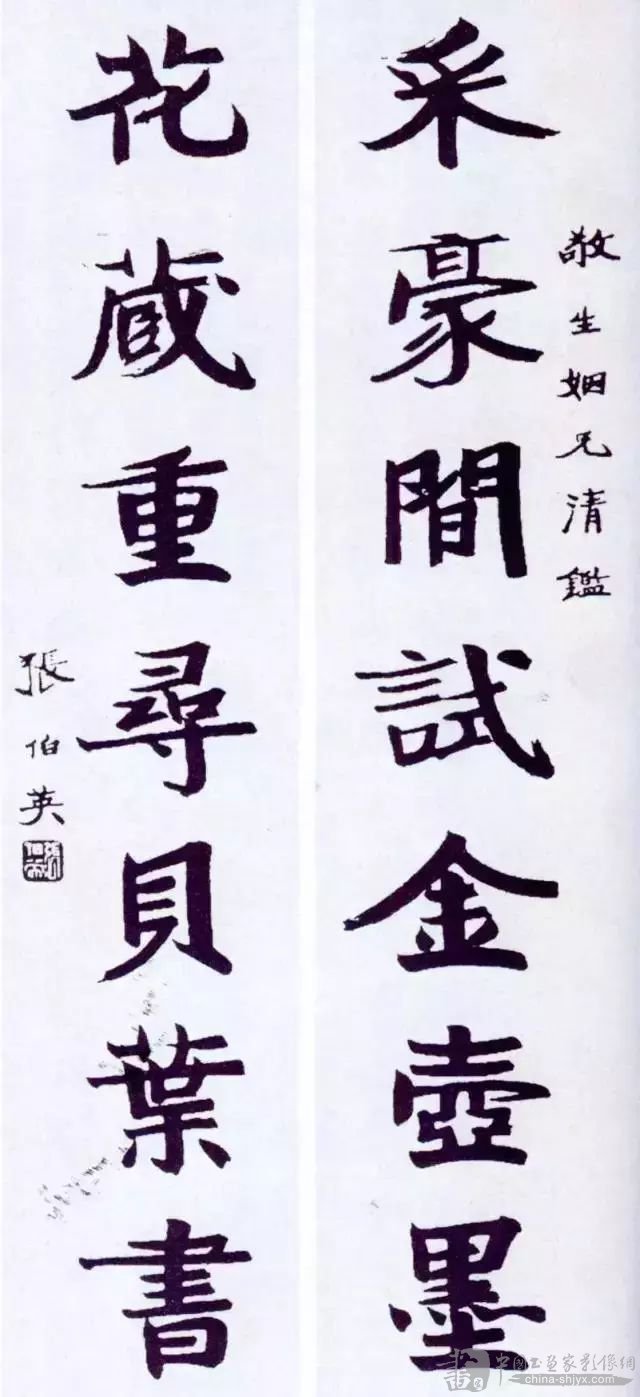 敬生姻兄清鑑
采豪間試金壺墨
花蔵重尋貝葉書
張伯英
中國书画家影像網
china-shjyx.com